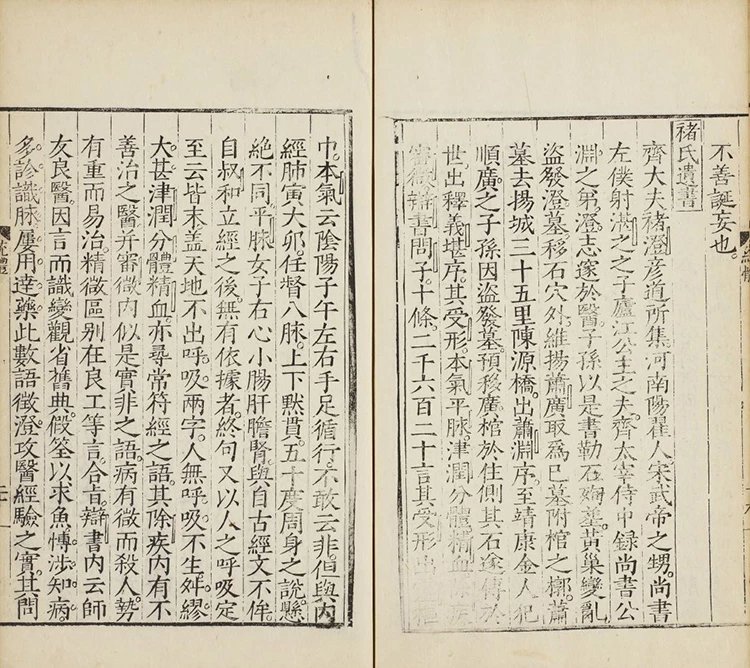 不善誕妄也。
褚氏遺書
齊大夫褚澄彥道所集河南陽翟人宋武帝之甥尚書
左僕射湛之之子廬江公主之夫。齊太宰侍中錄尚書公
淵之弟。澄志邃於醫子孫以是書勒石殉墓。黃巢變亂
盜發澄墓移石穴外。維揚蕭廣取爲巳墓附棺之槨。蕭
墓去揚城三十五里陳源橋。出蕭淵序。至靖康金人犯
順。廣之子孫因盜發墓預移廣棺於住側其石遂傳於
世。出釋義堪序。其受形。本氣平脉。津潤分體精血除疾
審微辯書問子。十條。二千六百二十言其受形
巾。本氣云陰陽子午左右手足循行。不敢云非。但與內
經肺寅大卯。任督八脉。上下黙貫。五十度周身之說懸
絕不同。平脉女子右心小腸肝膽腎與自古經文不侔。
自叔和立經之後。無有依據者。終句又以人之呼吸定
至云皆末盖天地不出呼吸兩字。人無呼吸不生舛繆
大甚。津潤分體精血。亦尋常符經之語。其除疾内有不
善治之醫并審微内似是實非之語病有微而殺人勢
有重而易治。精微區别在良工等言。合旨。辯書内云師
友良醫。因言而識變觀省舊典。假筌以求魚愽涉知病
多診識脉屢用達藥。此數語徵澄攻醫經驗之實。其問